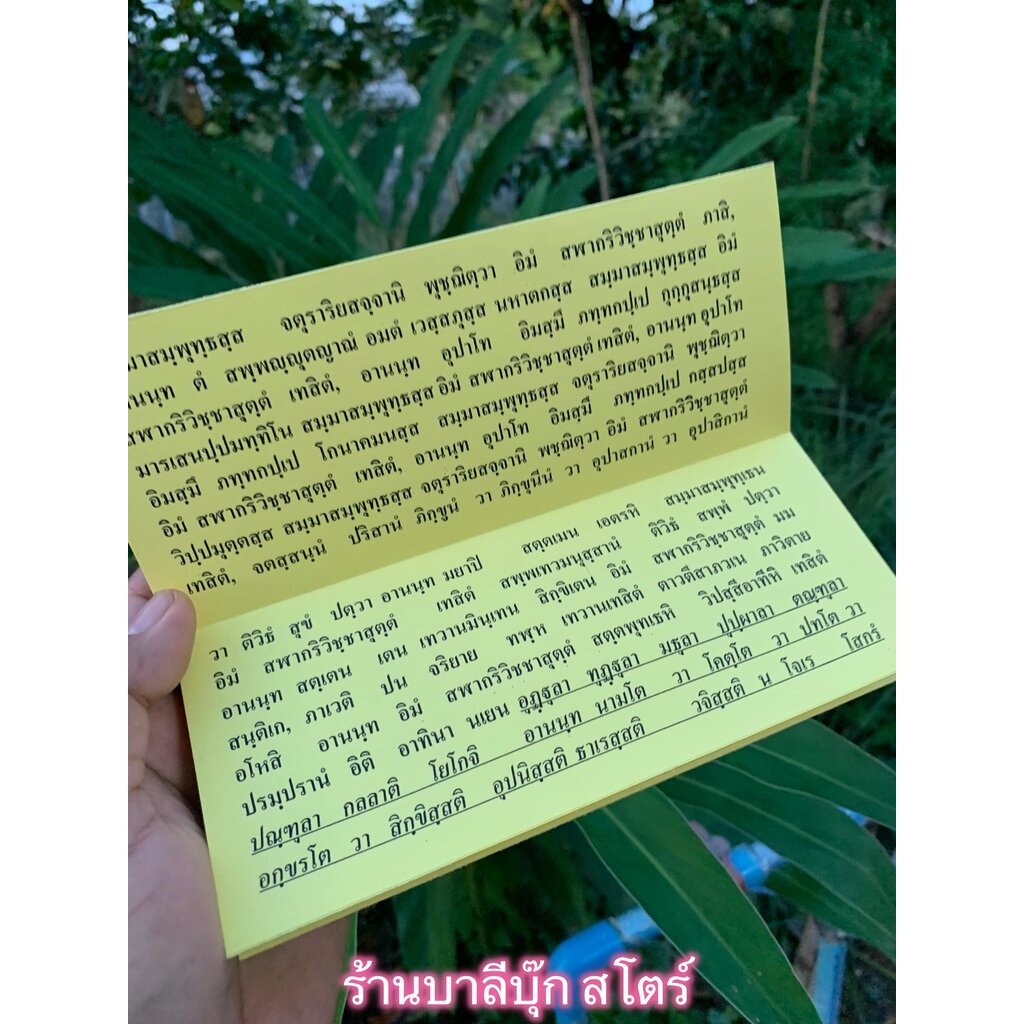 มาสมฺพุทฺธสฺส จตุราริยสจฺจานิ พุชฺฌิตฺวา อิมํ สพากริวิชฺชาสุตฺตํ ภาสิ,
านนฺท ตํ สพฺพญฺญุตญาณํ อมตํ เวสฺสภุสฺส นหาตกสฺส สมฺมาสมฺพุทฺธสฺส อิมํ
สพากริวิชฺชาสุตฺตํ เทสิตํ, อานนฺท อุปาโท อิมสฺมึ ภทฺทกปฺเป กุกฺกุสนฺธสฺส
มารเสนปฺปมทฺทิโน สมฺมาสมฺพุทฺธสฺส อิมํ สพากริวิชฺชาสุตฺตํ เทสิตํ, อานนฺท อุปาโท
อิมสฺมึ ภทฺทกปฺเป โกนาคมนสฺส สมฺมาสมฺพุทฺธสฺส จตุราริยสจฺจานิ พุชฺฌิตฺวา
อิมํ สพากริวิชฺชาสุตฺตํ เทสิตํ, อานนฺท อุปาโท อิมสฺมึ ภทฺทกปฺเป กสฺสปสฺส
วิปฺปมุตฺตสฺส สมฺมาสมฺพุทฺธสฺส จตุราริยสจฺจานิ พชฺฌิตฺวา อิมํ สพากริวิชฺชาสุตฺตํ
เทสิตํ, จตสฺสนฺนํ ปริสานํ ภิกฺขูนํ วา ภิกฺขุนีนํ วา อุปาสกานํ วา อุปาสิกานํ
วา ติวิธํ สุขํ ปตฺวา อานนฺท มยาปิ สตฺตเมน เอตรหิ สมฺมาสมฺพุทฺเธน
อิมํ สพากริวิชฺชาสุตฺตํ เทสิตํ สพฺพเทวมนุสฺสานํ ติวิธํ สพฺพํ ปตฺวา
อานนฺท สตฺเตน เตน เทวานมินฺเทน สิกฺขิเตน อิมํ สพากริวิชฺชาสุตฺตํ มม
สนฺติเก, ภาเวติ ปน จริยาย ทพฺห เทวานเทสิตํ ตาวตึสาภวเน ภาวิตาย
อโหสิ อานนฺท อิมํ สพากริวิชชาสุตฺตํ สตฺตพุทเธหิ วิปสฺสีอาทีหิ เทสิตํ
ปรมฺปรานํ อิติ อาทินา นเยน อุฏฺฐุลา ทุฏฺฐุลา มธุลา ปุปฺผาลา ตณฺฑุลา
ปณฺฑุลา กลลาติ โยโกจิ อานนฺท นามโต วา โคตฺโต วา ปทโต วา
อกฺขรโต วา สิกฺขิสฺสติ อุปนิสฺสติ ธาเรสฺสติ วจิสฺสติ น โจเร โสกรํ
ร้านบาลีบุ๊ก สโตร์